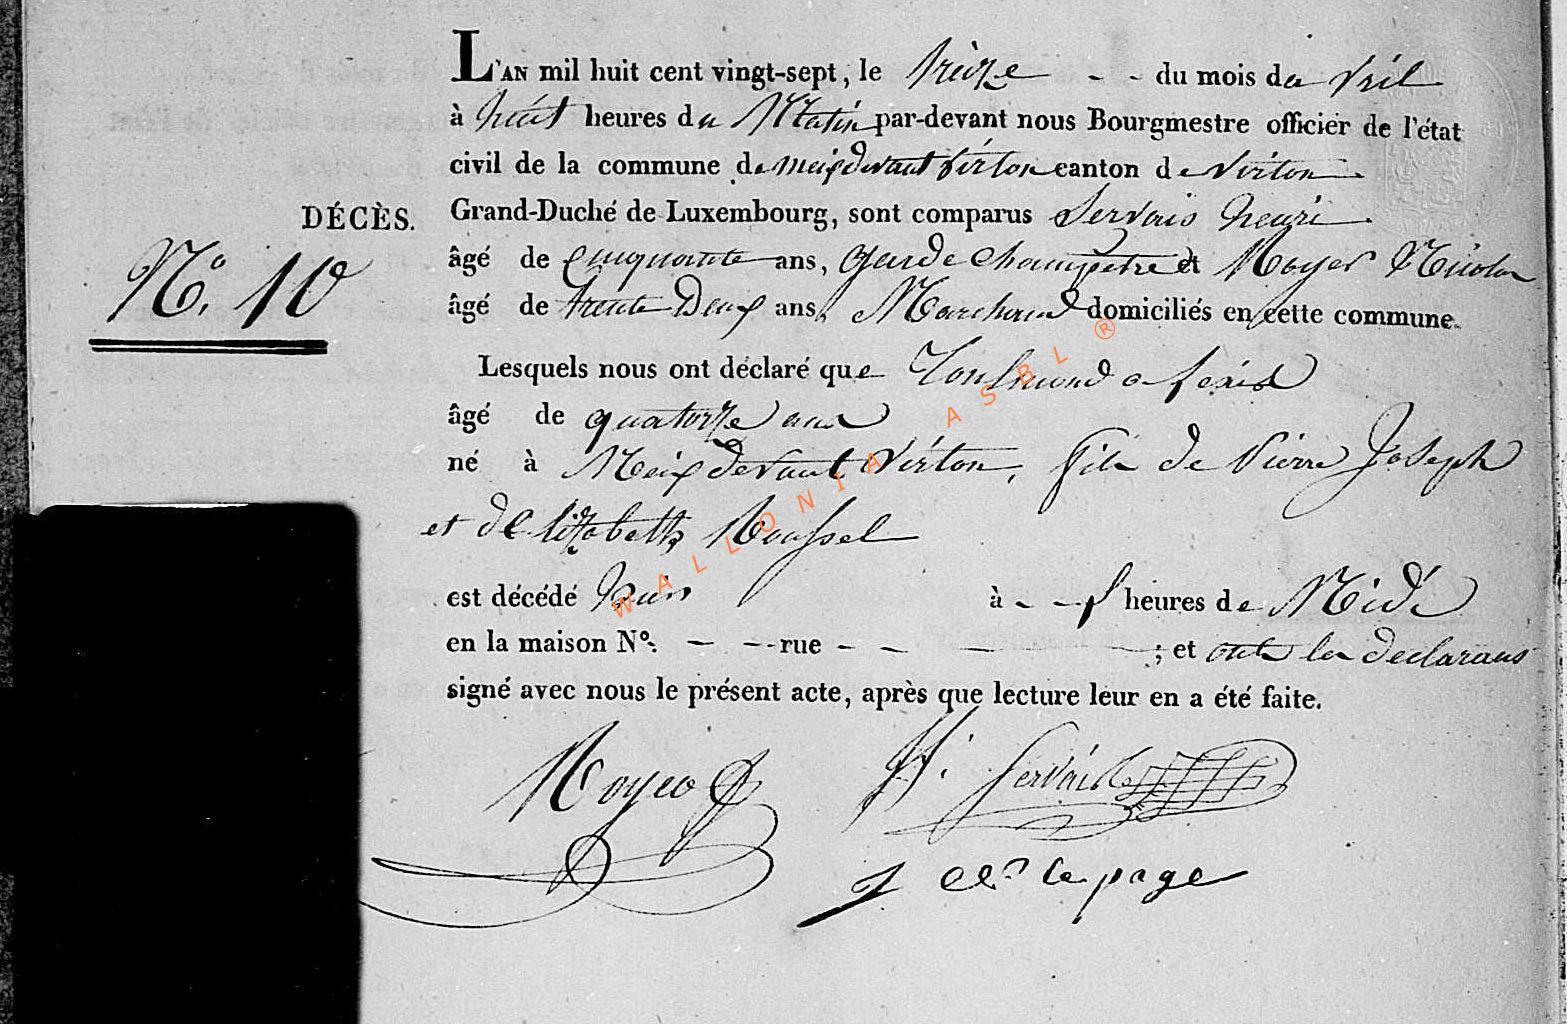 L'AN mil huit cent vingt-sept, le treize - - du mois d'avril
à huit heures du Matin par-devant nous Bourgmestre officier de l'état
civil de la commune de meix devant Virton canton de Virton
DÉCÈS. Grand-Duché de Luxembourg, sont comparus Servais henri
N° 10 âgé de cinquante ans, garde champetre et Noyer Nicolas
âgé de trente Deux ans, Marchand domiciliés en cette commune.
Lesquels nous ont déclaré que
âgé de quatorze ans
né à Meix devant Virton, fils de Pierre Joseph
et d'Elizabeth Roussel
est décédé hier à - - heures de Midi
en la maison N°. - - rue - - - - ; et ont les declarans
signé avec nous le présent acte, après que lecture leur en a été faite.
Noyer H. Servais
lepage
WALLONIA ASBL ®